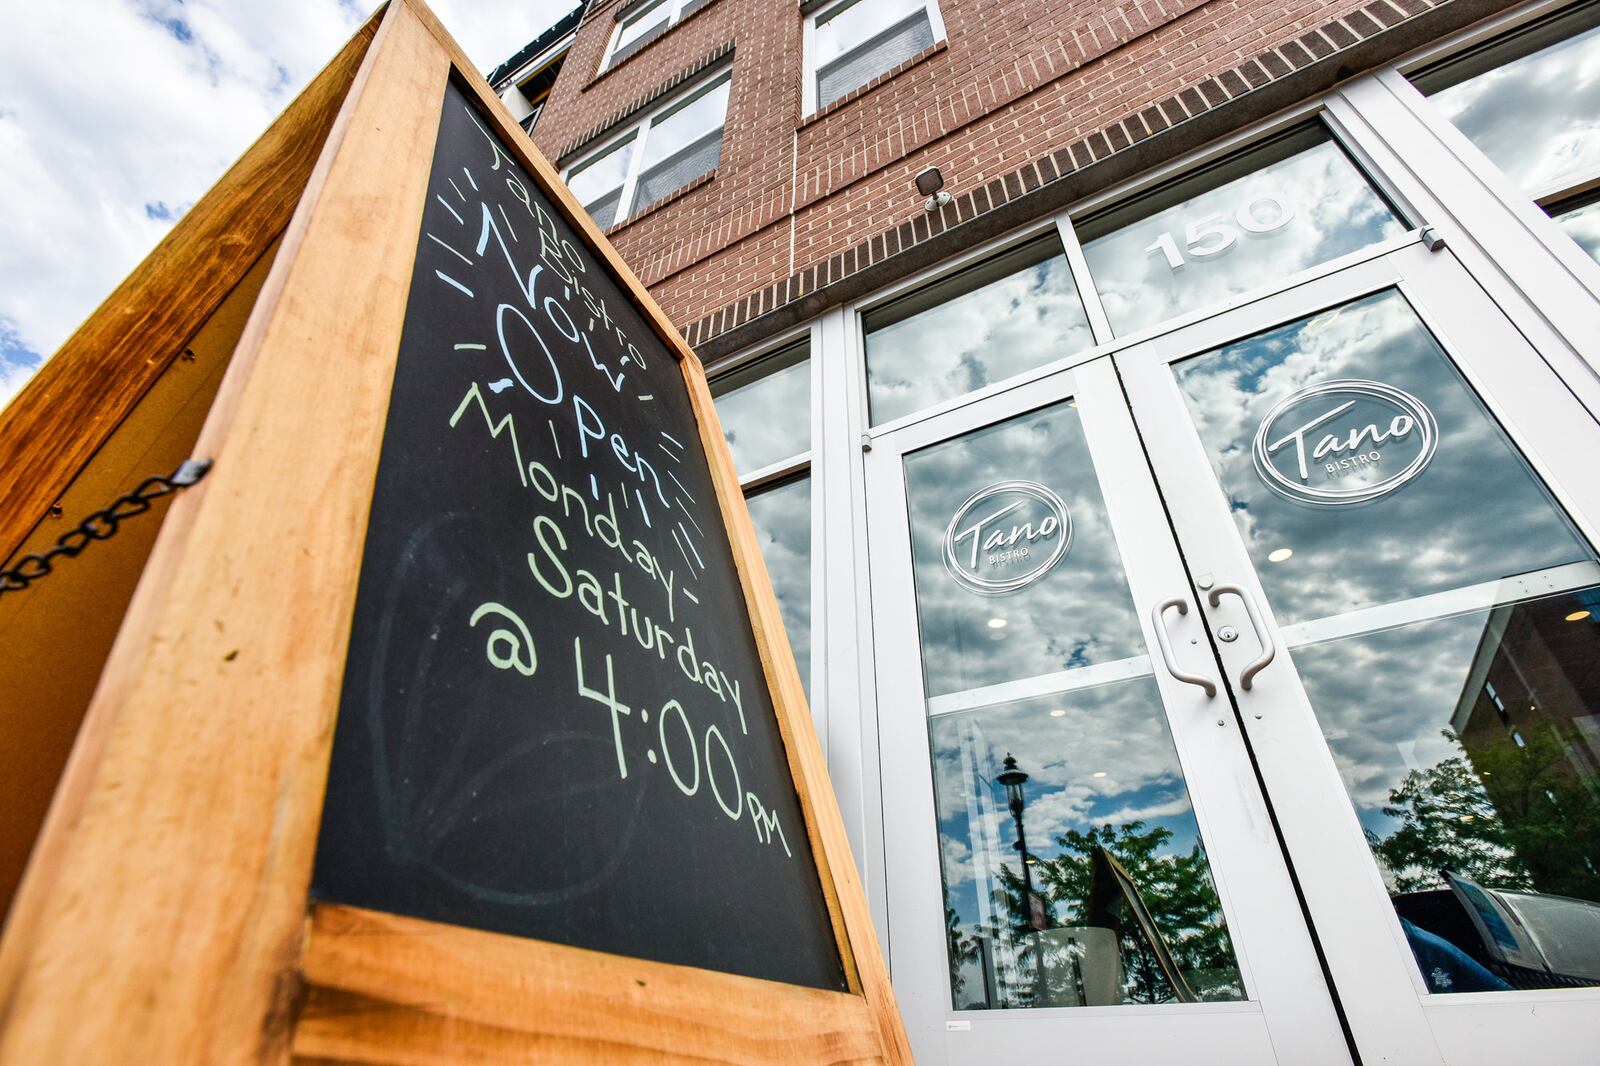 Tano
Bistro
Now
Open
Monday-
Saturday
@ 4:00PM
150
Tano
BISTRO
Tano
BISTRO